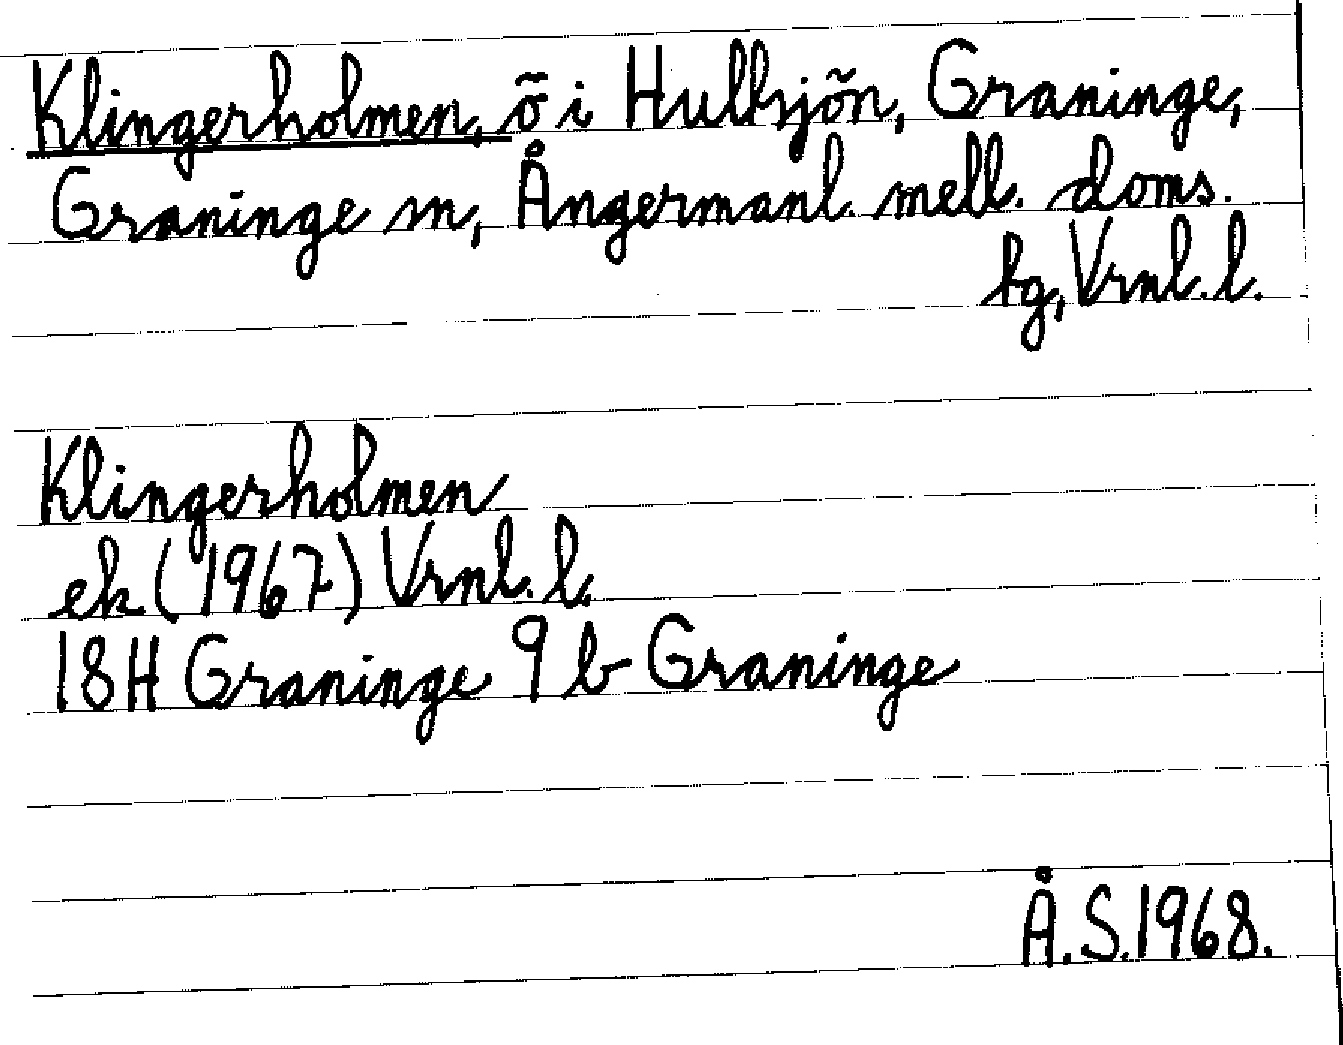 Klingerholmen, ö i Hulhjön, Graninge,
Graninge sn, Ångermanl. mell. doms.
bg, Vrnl. l.
Klingerholmen
ek (1967) Vrnl. l.
18H Graninge 9 b Graninge
Å.S.1968.